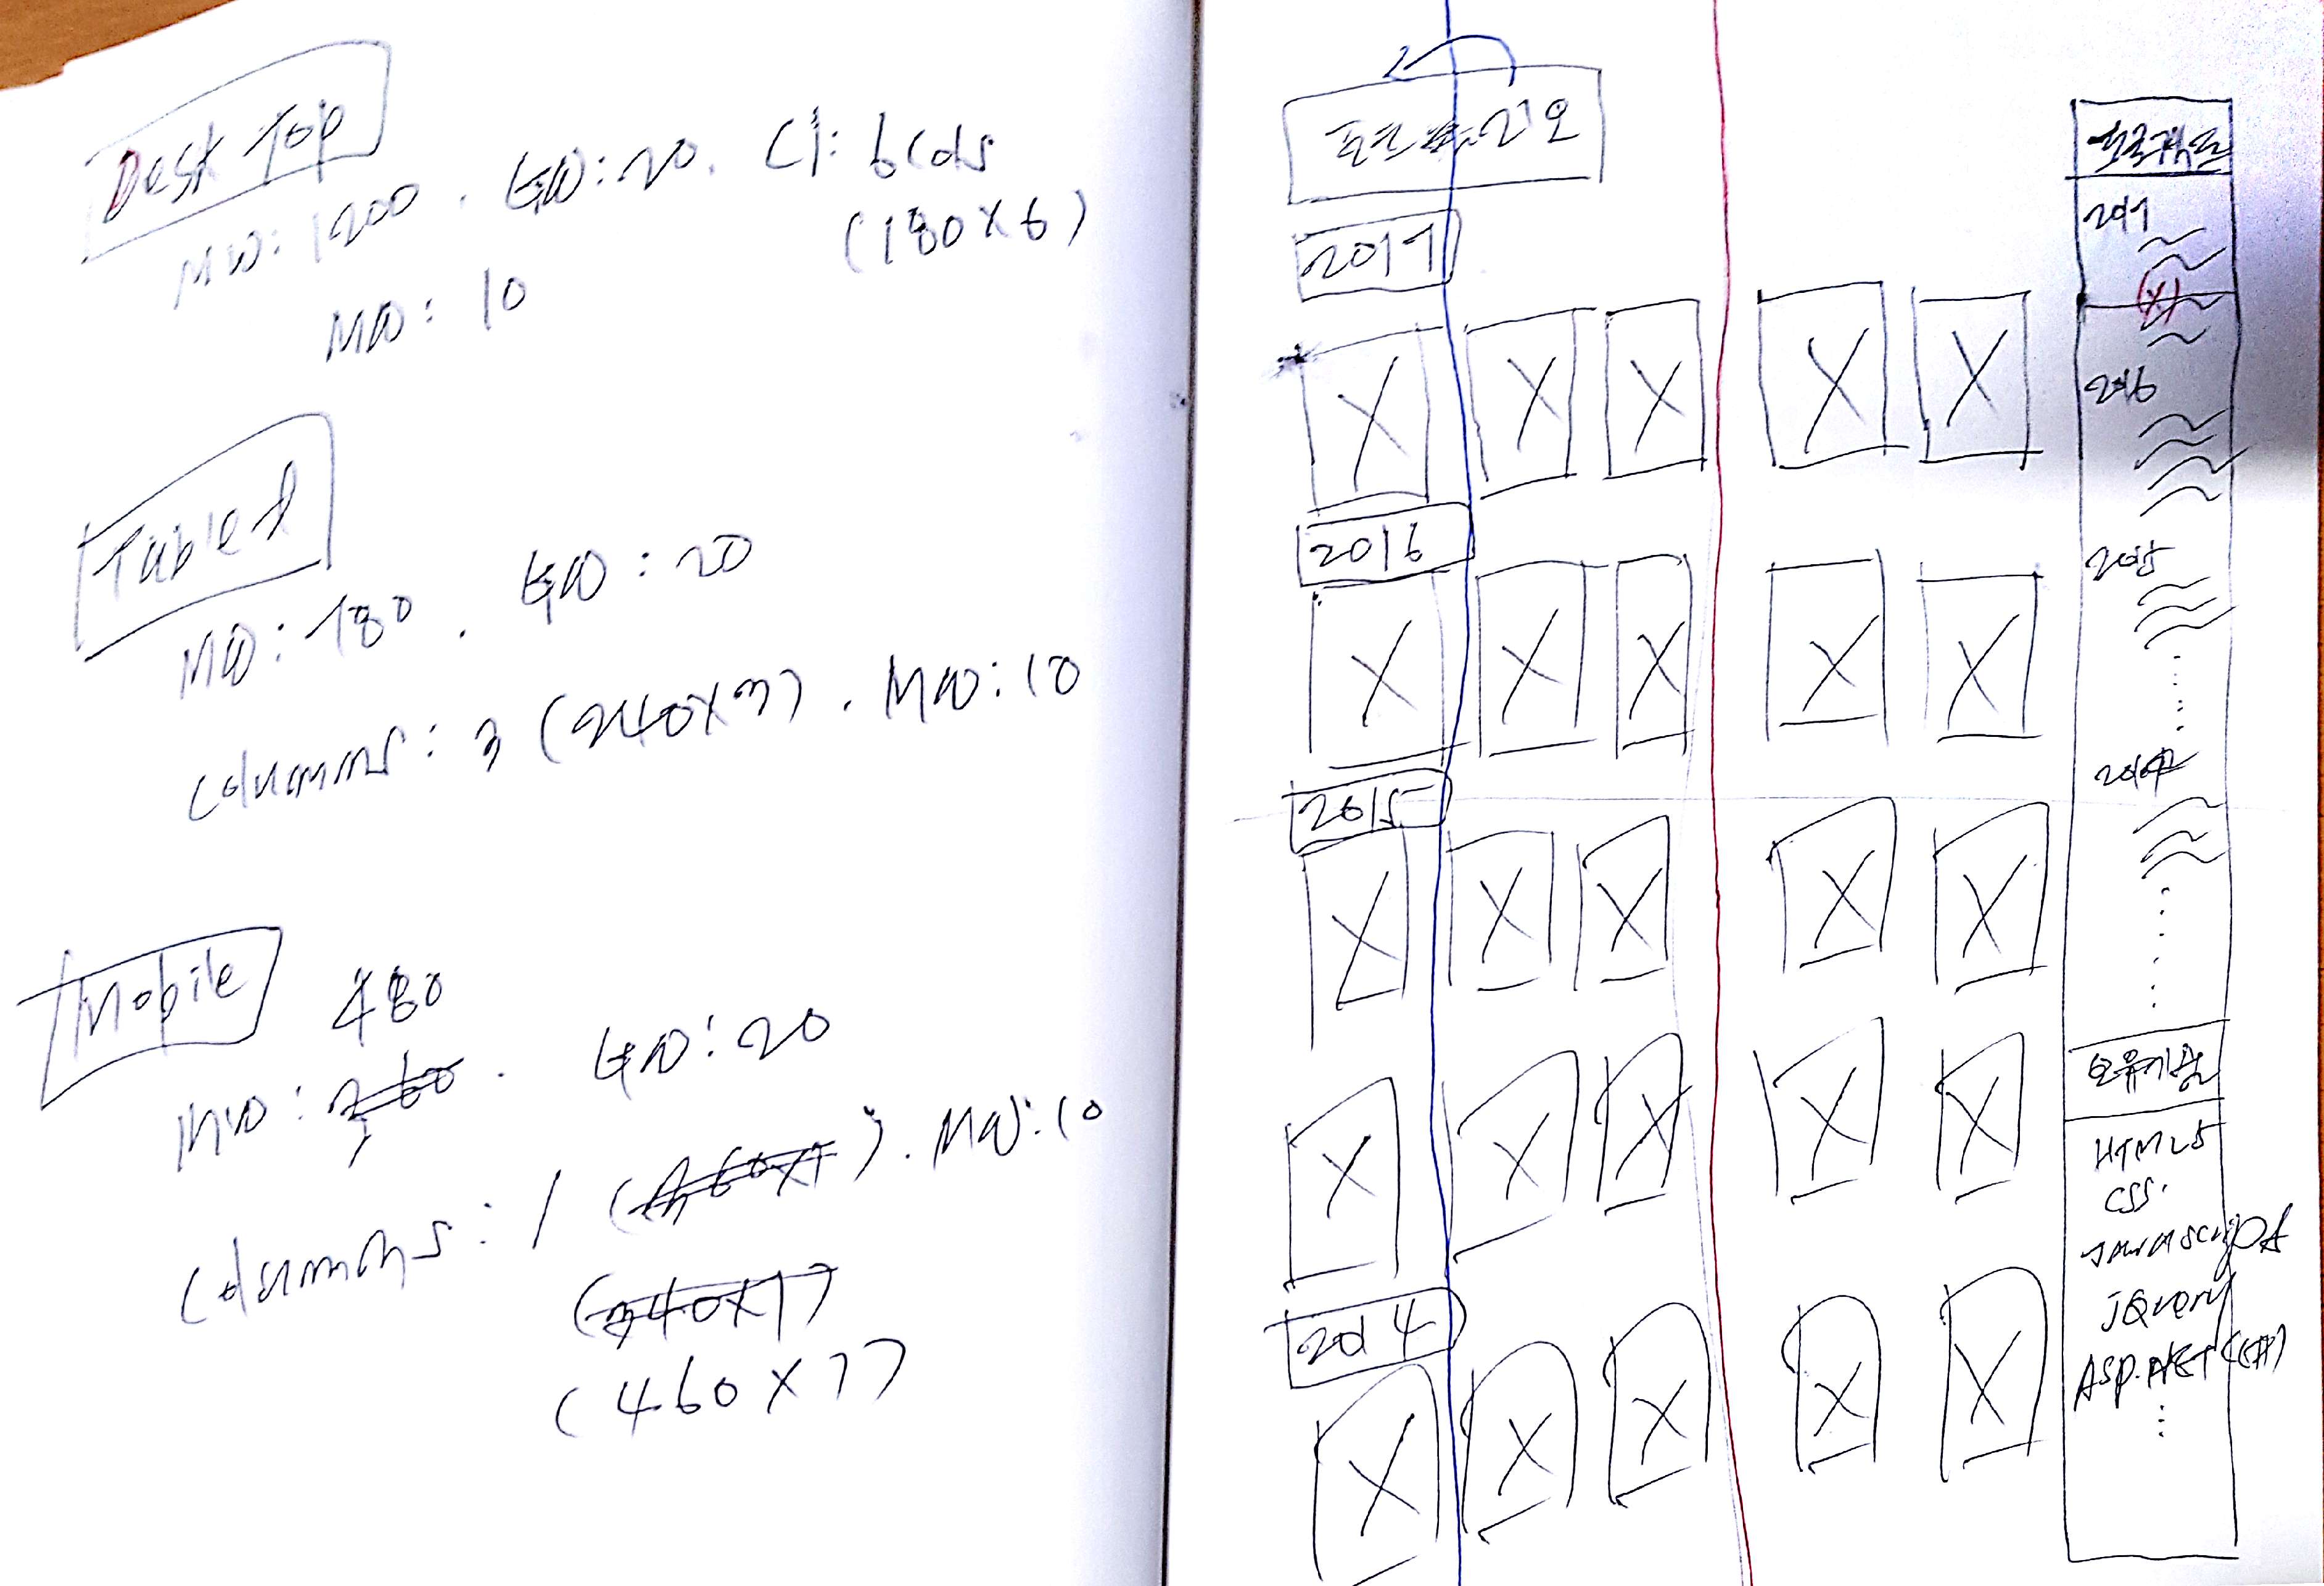 DeskTop
MW: 1200. GW: 20. Cl: 6Cols
(180X6)
MW: 10
Tablet
MW: 780. GW: 20
Columns: 3 (240X3). MW: 10
Mobile
480
MW: 360. GW: 20
Columns: 1 (360X1). MW: 10
(340X1)
(460X1)
포트폴리오
2017
2016
2015
2014
2017
(X)
2016
2015
2014
보유기술
HTML5
CSS.
JavaScript
JQuery
ASP.NET (C#)